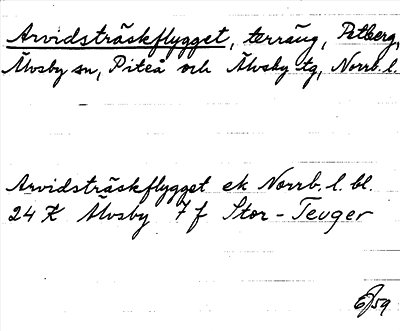 Arvidsträskflygget, terräng, Patberg,
Älvsby sn, Piteå och Älvsby tg, Norrb. l.
Arvidsträskflygget ek Norrb. l. bl.
24 K Älvsby 7 f Stor-Teuger